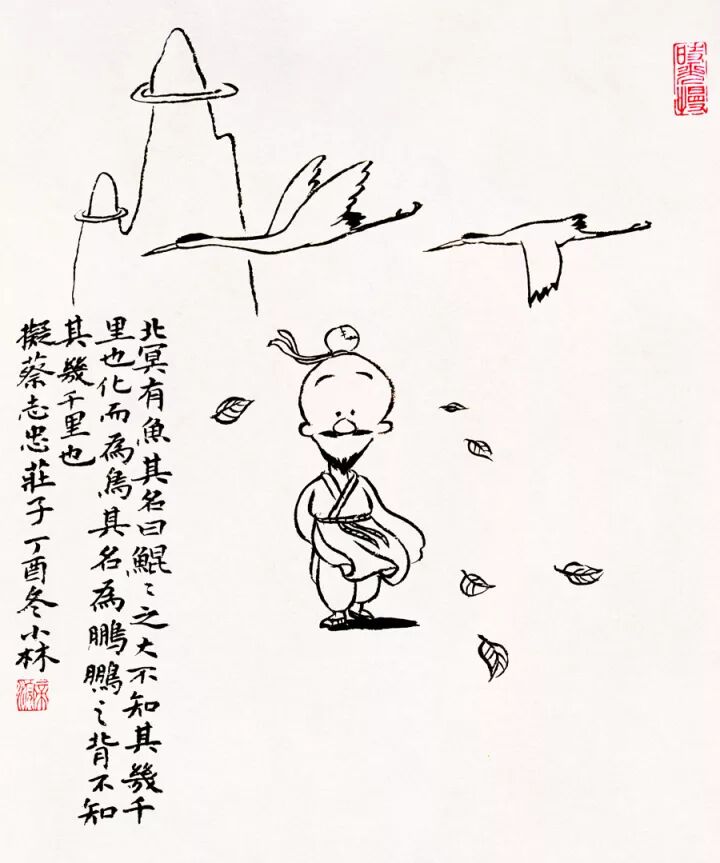 北冥有魚其名曰鯤〻之大不知其幾千
里也化而為鳥其名為鵬鵬之背不知
其幾千里也
擬蔡志忠莊子丁酉冬小林